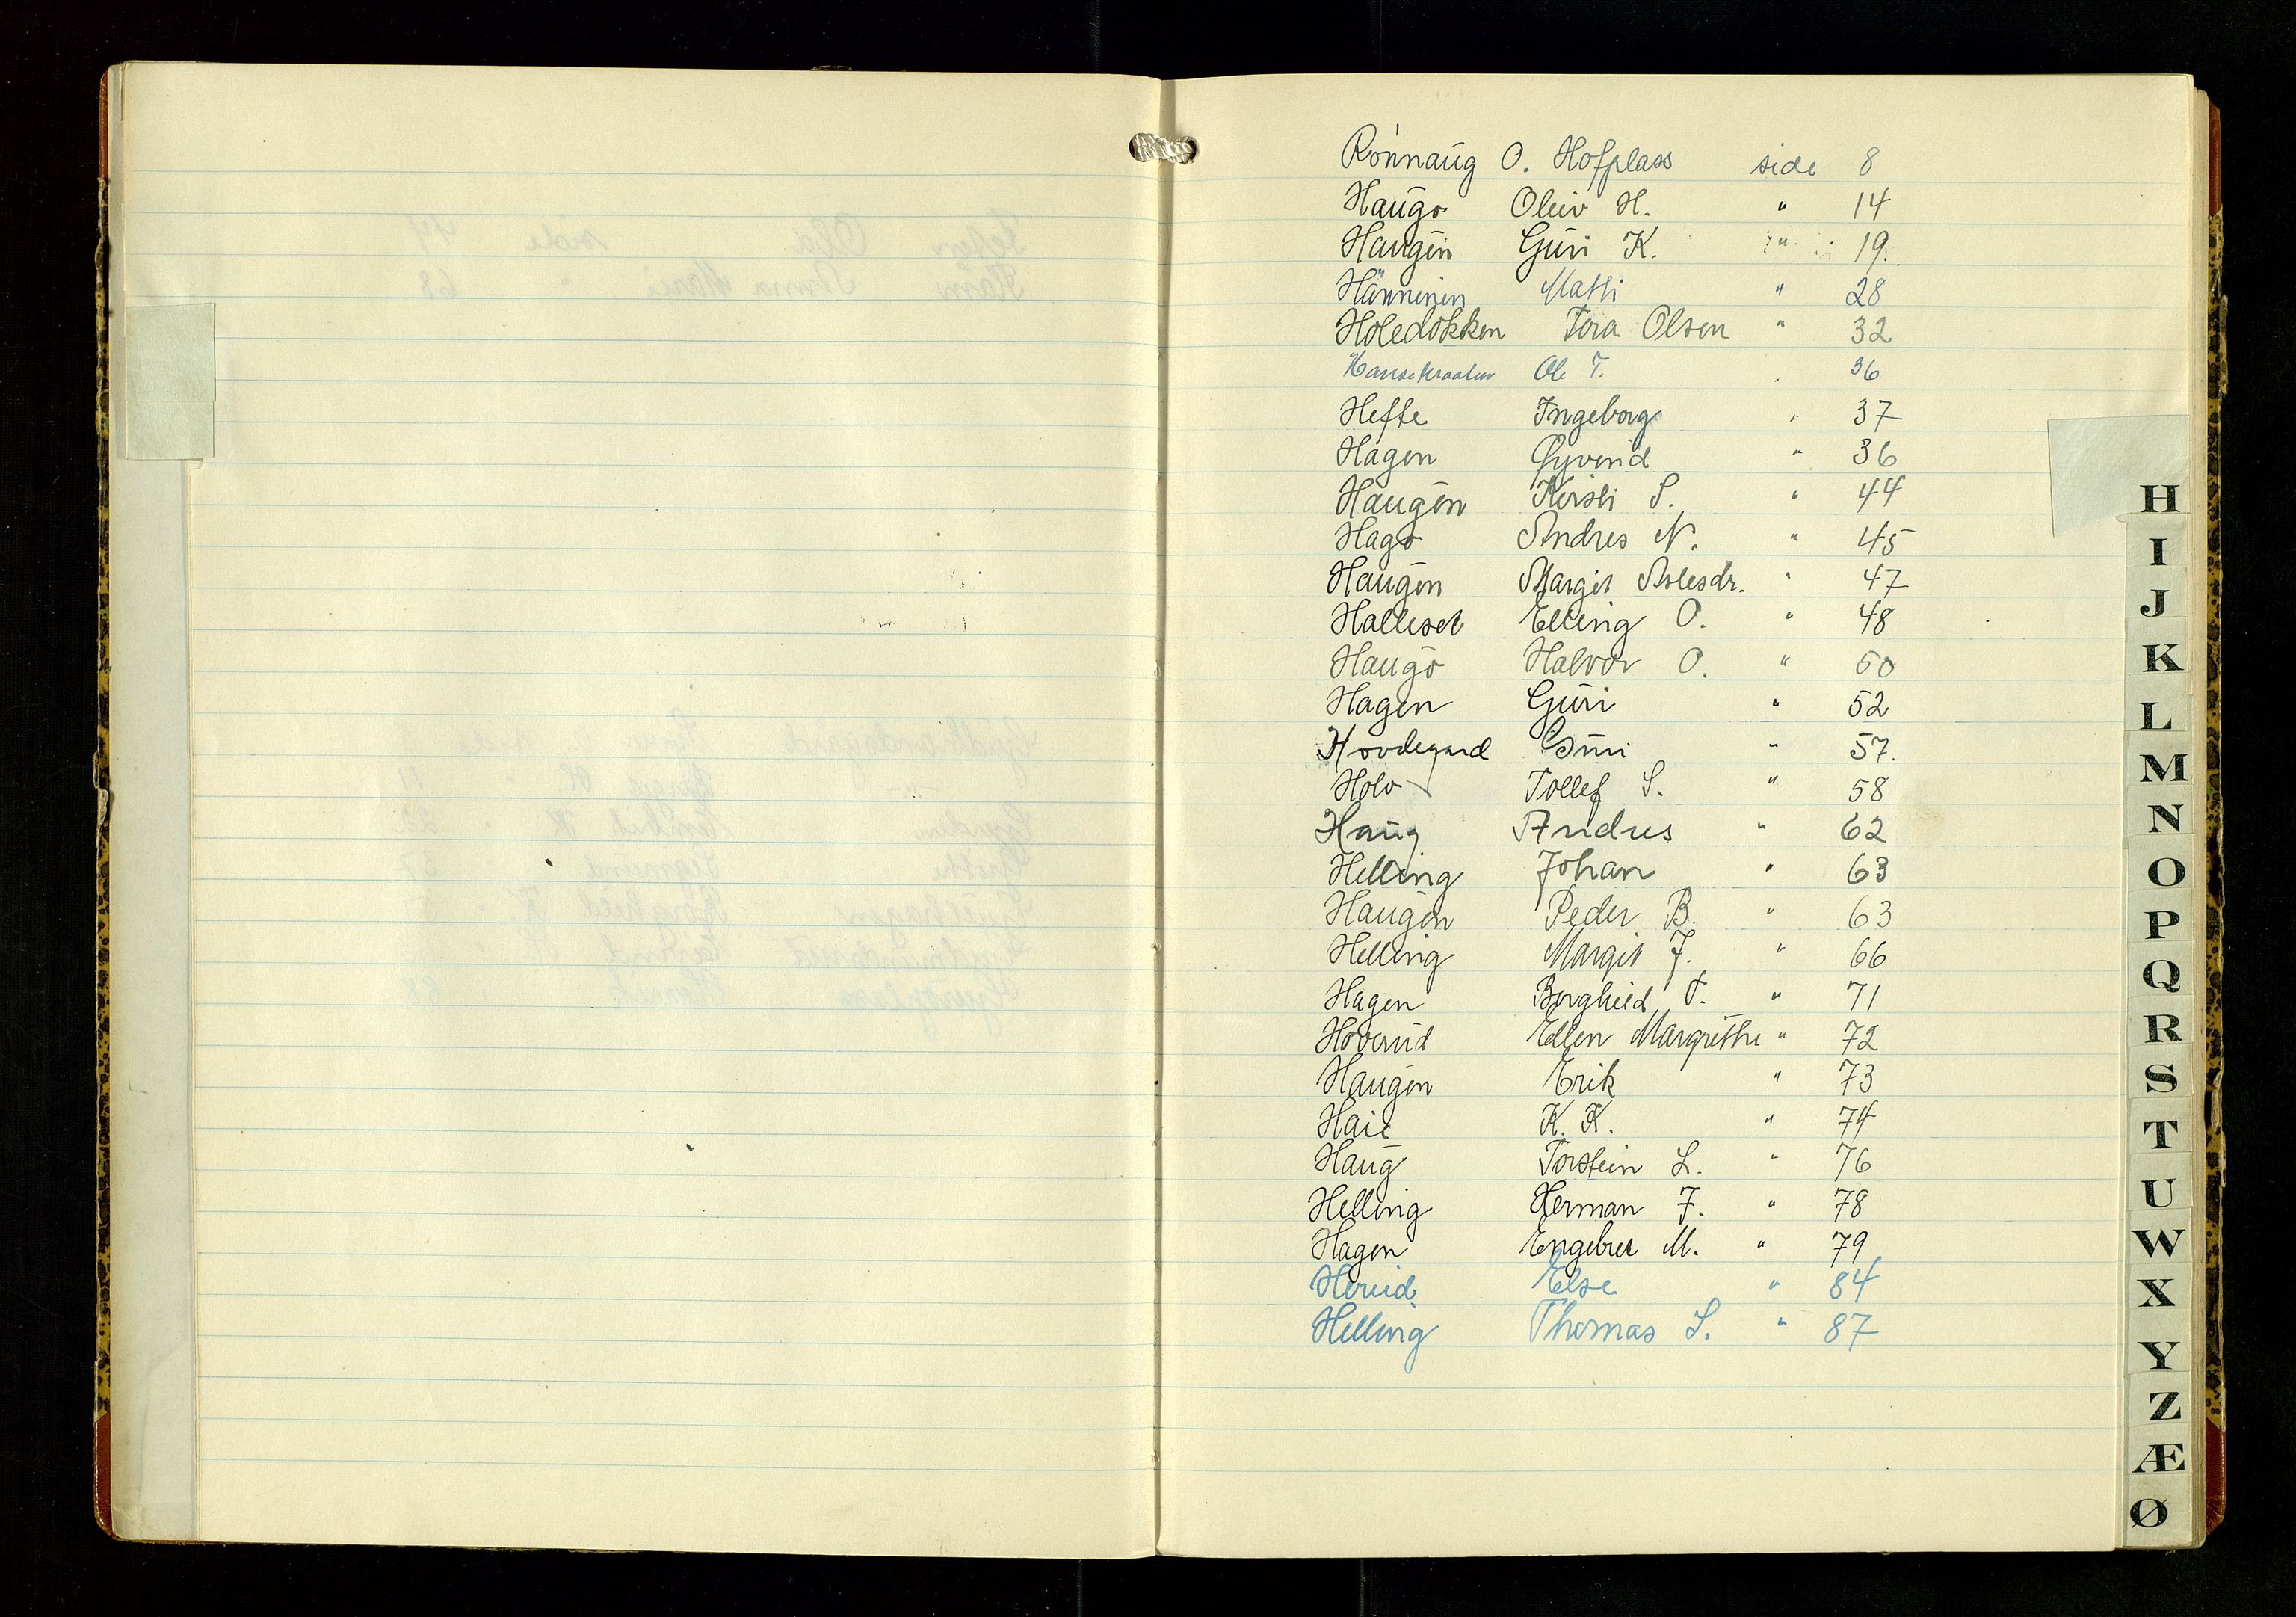 Rönnaug O. Hofplass side 8
Haugo Oleiv H. " 14
Haugen Guri K. " 19.
Hänninen Matti " 28
Holedokken Tora Olsen " 32
Ole T. 36
Hefte Ingeborg " 37
Hagen Øyvind " 36
Haugen Kirsti S. " 44
Hago Andres N. " 45
Haugen Margit Aslesdr. " 47
Halleset Elling O. " 48
Haugo Halvor O. " 50
Hagen Guri " 52
Hovdegard Guri " 57.
Holo Tollef S. " 58
Haug Andres " 62
Helling Johan " 63
Haugen Peder B. " 63
Helling Margit J. " 66
Hagen Borghild T. " 71
Hoverud Ellen Margrethe " 72
Haugen Erik " 73
Haie K. K. " 74
Haug Torstein L. " 76
Helling Herman J. " 78
Hagen Engebret M. " 79
Herud Else " 84
Helling Thomas S. " 87
H
I
J
K
L
M
N
O
P
Q
R
S
T
U
W
X
Y
Z
Æ
Ø